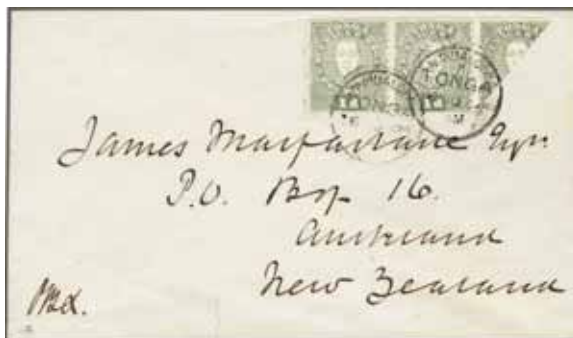 TONGA
TONGA
James Macfarlane Esqr
P.O. Box 16.
Auckland
New Zealand